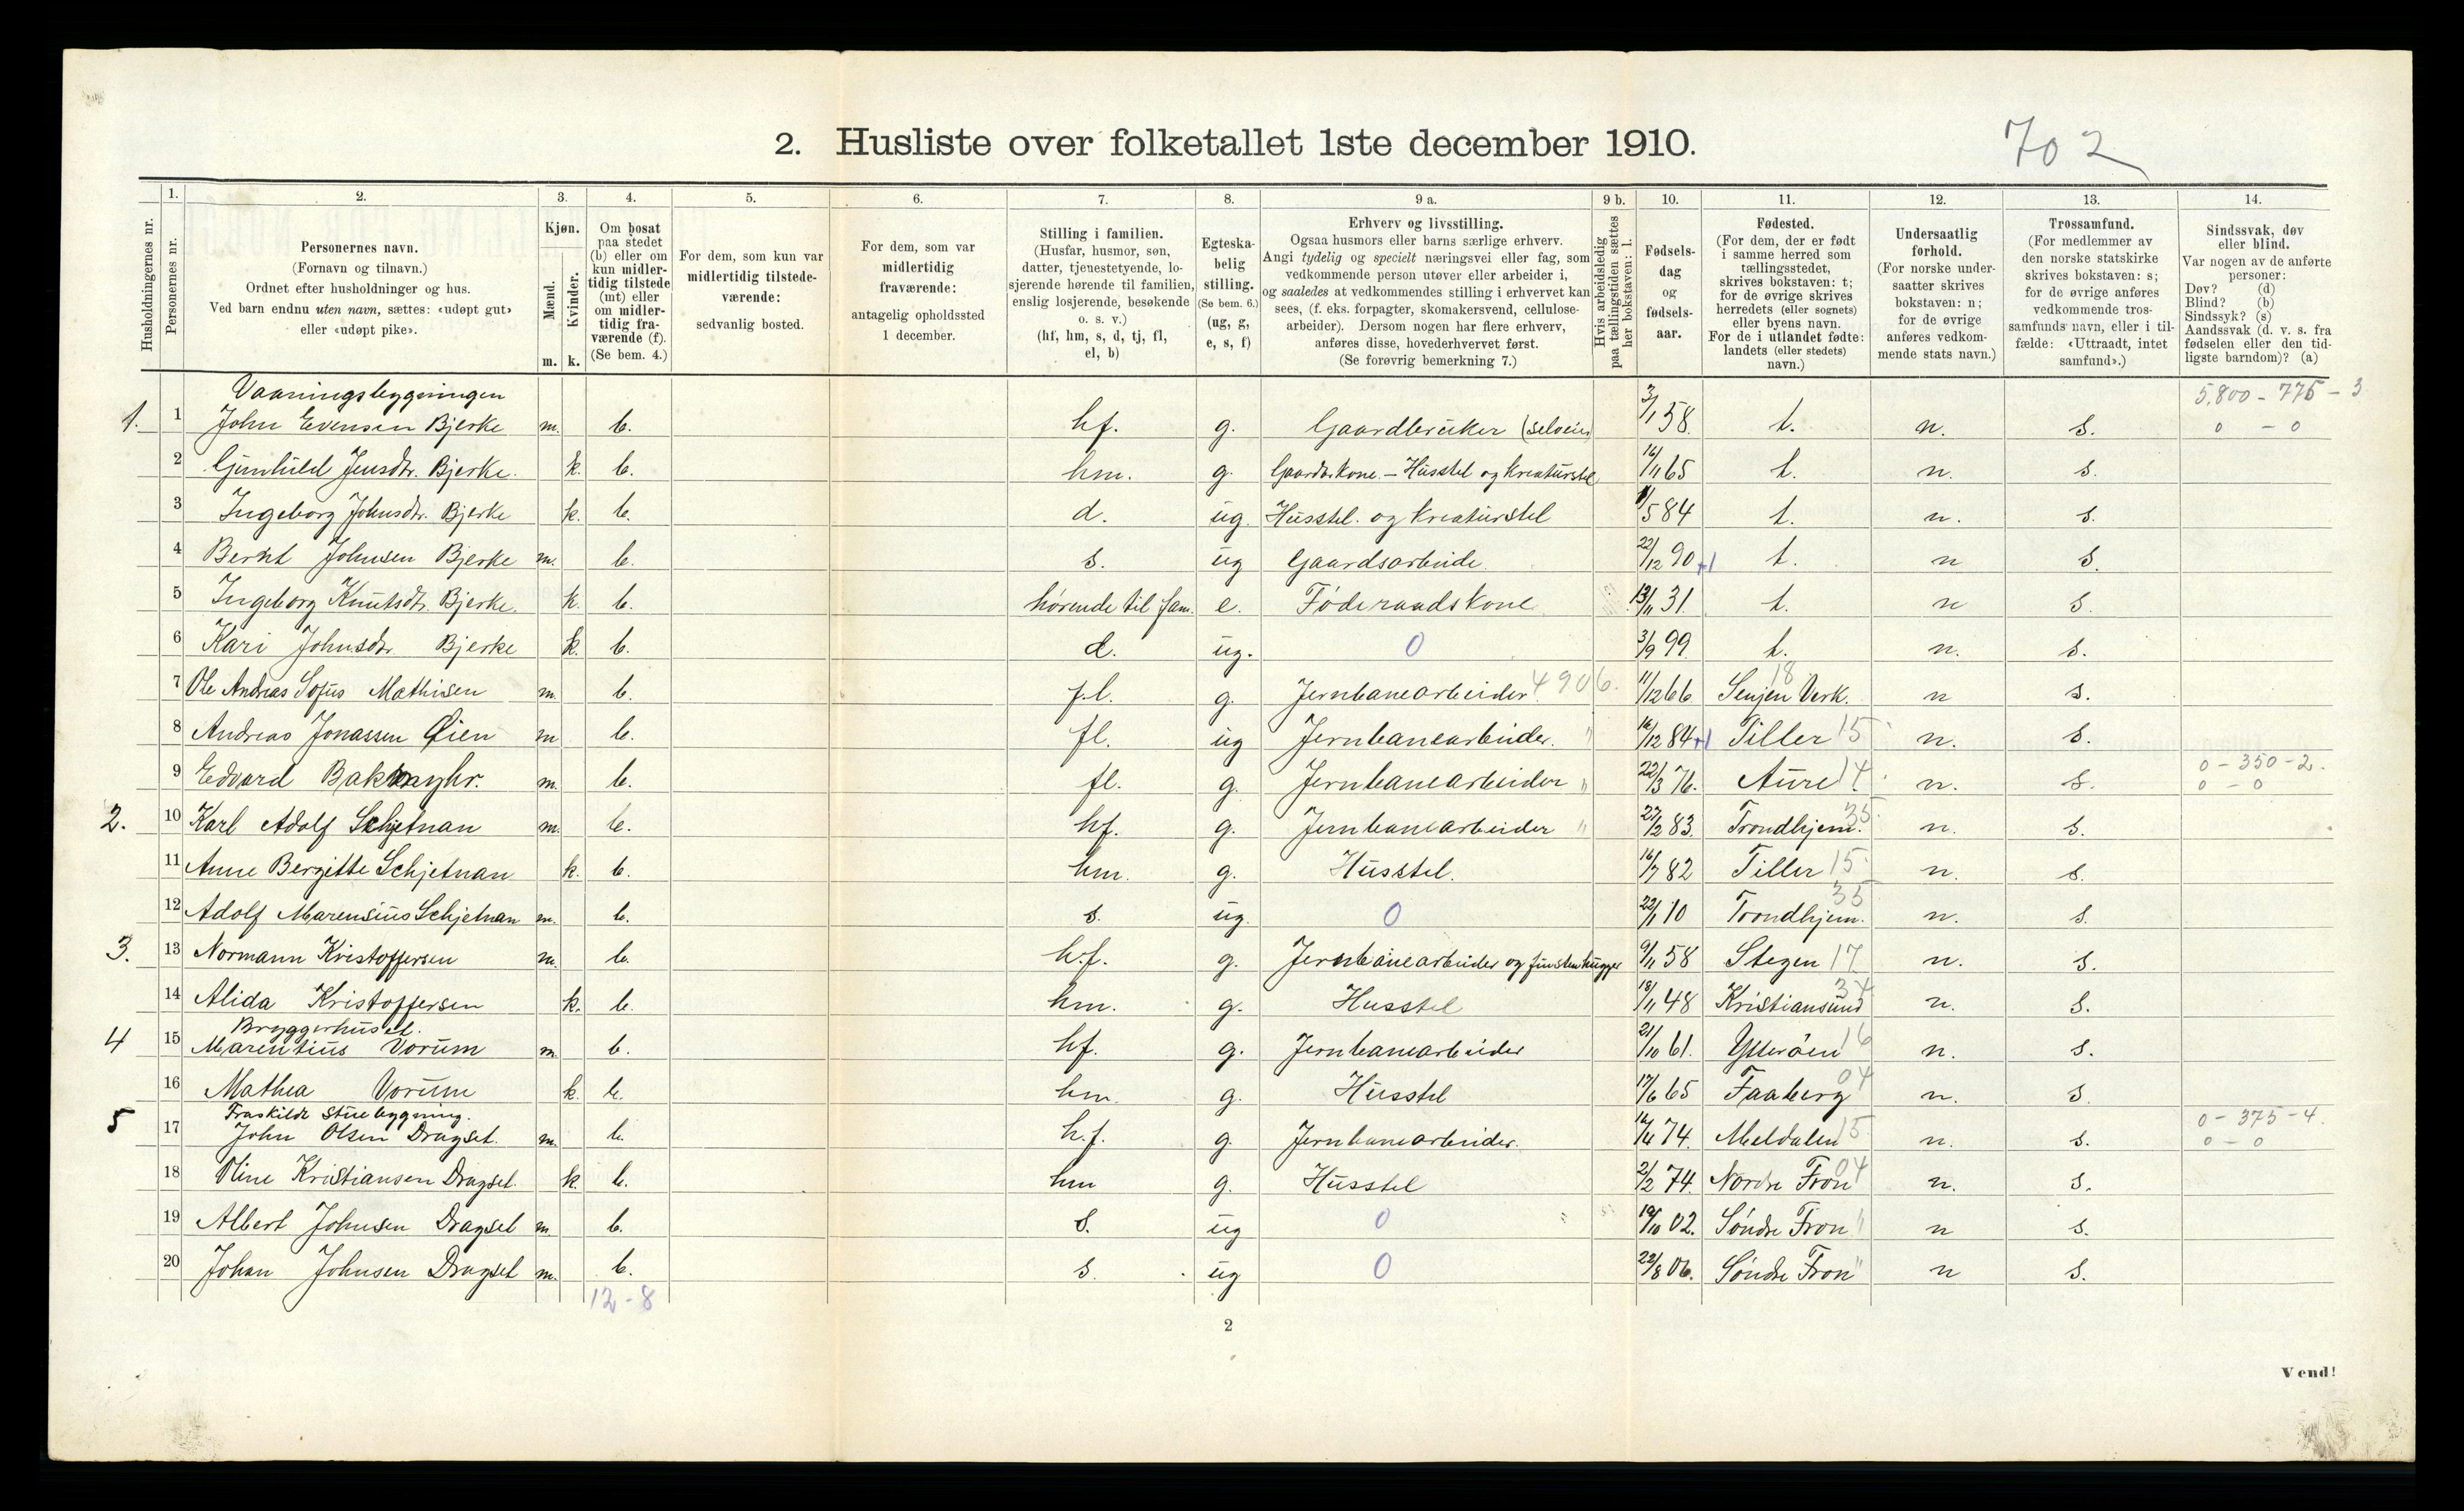 702
2. Husliste over folketallet 1ste december 1910.
Husholdningernes nr.
1. Personernes nr.
2. Personernes navn. (Fornavn og tilnavn.) Ordnet efter husholdninger og hus. Ved barn endnu uten navn, sættes: «udøpt gut» eller «udøpt pike».
3. Kjøn. Mænd. m. Kvinder. k.
4. Om bosat paa stedet (b) eller om kun midlertidig tilstede (mt) eller om midlertidig fraværende (f). (Se bem. 4.)
5. For dem, som kun var midlertidig tilstedeværende: sedvanlig bosted.
6. For dem, som var midlertidig fraværende: antagelig opholdssted 1 december.
7. Stilling i familien. (Husfar, husmor, søn, datter, tjenestetyende, losjerende hørende til familien, enslig losjerende, besøkende o. s. v.) (hf, hm, s, d, tj, fl, el, b)
8. Egteskabelig stilling. (Se bem. 6.) (ug, g, e, s, f)
9 a. Erhverv og livsstilling. Ogsaa husmors eller barns særlige erhverv. Angi tydelig og specielt næringsvei eller fag, som vedkommende person utøver eller arbeider i, og saaledes at vedkommendes stilling i erhvervet kan sees, (f. eks. forpagter, skomakersvend, cellulosearbeider). Dersom nogen har flere erhverv, anføres disse, hovederhvervet først. (Se forøvrig bemerkning 7.)
9 b. Hvis arbeidsledig paa tællingstiden sættes her bokstaven: l.
10. Fødselsdag og fødselsaar.
11. Fødested. (For dem, der er født i samme herred som tællingsstedet, skrives bokstaven: t; for de øvrige skrives herredets (eller sognets) eller byens navn. For de i utlandet fødte: landets (eller stedets) navn.)
12. Undersaatlig forhold. (For norske undersaatter skrives bokstaven: n; for de øvrige anføres vedkommende stats navn.)
13. Trossamfund. (For medlemmer av den norske statskirke skrives bokstaven: s; for de øvrige anføres vedkommende trossamfunds navn, eller i tilfælde: «Uttraadt, intet samfund».)
14. Sindssvak, døv eller blind. Var nogen av de anførte personer: Døv? (d) Blind? (b) Sindssyk? (s) Aandssvak (d. v. s. fra fødselen eller den tidligste barndom)? (a)
Vaaningsbygningen 5.800 - 775 - 3
1. 1 John Evensen Bjerke m. b. hf. g. Gaardbruker (selveier) 3/1 58. t. n. s. 0 - 0
2 Gunhild Jensdtr. Bjerke. k. b. hm. g. Gaardbr.kone - Husstel og kreaturstel 16/11 65 t. n. s.
3 Ingeborg Johnsdr. Bjerke k. b. d. ug. Husstel og kreaturstel /5 84 t. n. s.
4 Bernt Johnsen Bjerke m. b. s. ug Gaardsarbeide 22/12 90 t. n s.
5 Ingeborg Knutsdtr. Bjerke. k. b. hørende til fam. e. Føderaadskone 13/11 31. t. n s.
6 Kari Johnsdr. Bjerke k. b. d. ug. 0 3/9 99 t. n. s.
7 Ole Andreas Sofus Mathisen m. b. f.l. g. Jernbanearbeider 4906. 11/12 66. Senjen Verk. 18 n s.
8 Andreas Jonassen Øien m b. fl. ug Jernbanearbeider. " 16/12 84 Tiller 15 n. s.
9 Edvard m. b. fl. g. Jernbanearbeider " 22/3 76. Aure 14 n. s. 0 - 350 - 2. 0 - 0
2. 10 Karl Adolf Schjetnan m. b. hf. g. Jernbanearbeider " 27/2 83. Trondhjem. 35 n. s.
11 Anne Bergitte Schjetnan k. b. hm. g. Husstel. 16/7 82 Tiller 15 n. s.
12 Adolf Marensius Schjetnan m. b. s. ug. 0 22/1 10 Trondhjem. 35 n. s.
3. 13 Normann Kristoffersen m. b. h.f. g. Jernbanearbeider og finstenhugger 9/11 58 Stegen 17 n. s.
14 Alida Kristoffersen k. b. hm. g. Husstel 18/11 48 Kristiansund 34 n. s.
Bryggerhuset.
4 15 Marentius Vorum m. b. hf. g. Jernbanearbeider 21/10 61. Ytterøen 16 n. s.
16 Mathea Vorum k. b. hm. g. Husstel 17/6 65 Faaberg 04 n. s.
Fraskildt stuebygning.
5 17 John Olsen Dragset. m. b. h.f. g. Jernbanearbeider. 74. Meldalen 15 n. s. 0 - 375 - 4. 0 - 0
18 Oline Kristiansen Dragset. k. b. hm g. Husstel 2/2 74. Nordre Fron 04 n. s.
19 Albert Johnsen Dragset m. b. s. ug 0 19/10 02. Søndre Fron " n s.
20 Johan Johnsen Dragset m. b. s. ug 0 22/8 06. Søndre Fron " n s.
12 - 8
2
Vend!